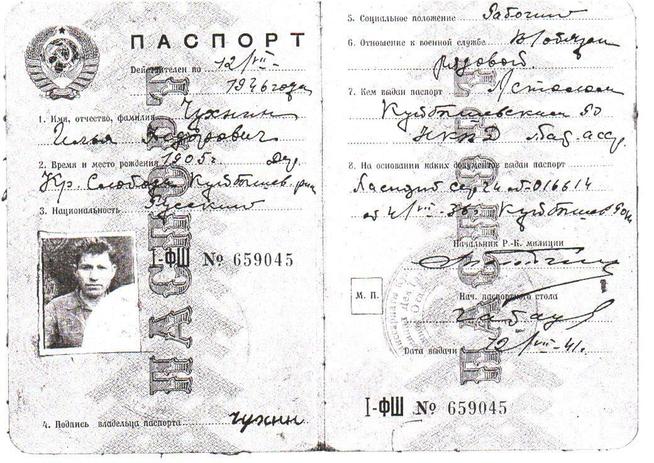 ПАСПОРТ
Действителен по 12/VIII-
1946 года
1. Имя, отчество, фамилия Чухнин
Илья Федорович
2. Время и место рождения 1905 г. дер.
Кр. Слобода Куйбышев. р-на
3. Национальность Русский
I-ФШ № 659045
4. Подпись владельца паспорта Чухнин
ПАСПОРТ
5. Социальное положение Рабочий
6. Отношение к военной службе В/обязан
рядовой.
7. Кем выдан паспорт
Куйбышевским РО
НКВД Тат. АССР
8. На основании каких документов выдан паспорт
Паспорт сер. № 016614
Начальник Р.-К. милиции
М. П.
Нач. паспортного стола
Дата выдачи 12/VIII-41.
I-ФШ № 659045
ПАСПОРТ